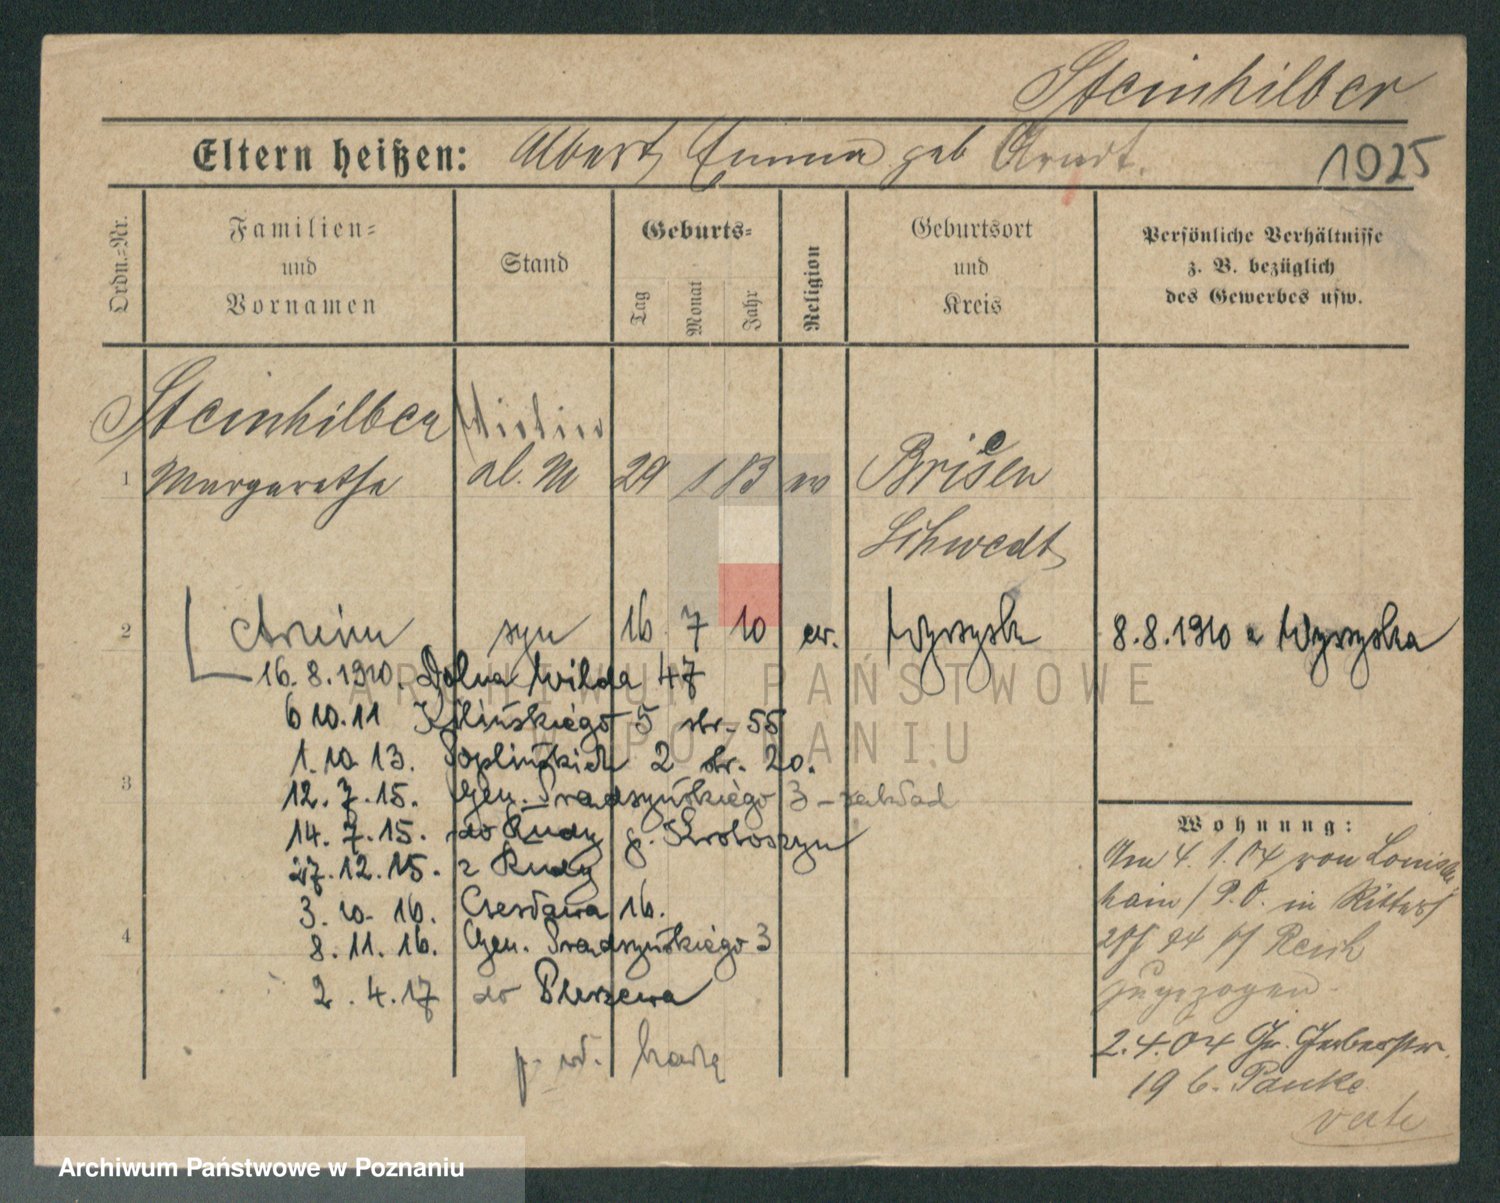 Steinhilber
Eltern heißen: Albert, Emma geb Arndt.
1925
Ordn.-Nr.
Familien-
und
Vornamen
Stand
Geburts-
Tag
Monat
Jahr
Religion
Geburtsort
und
Kreis
Persönliche Verhältnisse
z. B. bezüglich
des Gewerbes usw.
Steinhilber
1 Margarethe 29 1 83 Briesen
Schwedt
2 syn 16 7 10 ew. Wyrzysk 8.8.1910 z Wyrzyska
16.8.1910. Dolna Wilda 47
6 10.11 Kilińskiego 5 str. 55
1.10 13. Soplińskich 2 str. 20.
3
12.7.15. Gen. Prądzyńskiego 3 - zakład
14.7.15. do Rudy p. Krotoszyn
27.12.15. z Rudy
3.10.16. Czesława 16.
4
8.11.16. Gen. Prądzyńskiego 3
2.4.17 do Pleszewa
Wohnung:
Am 4.1.04 von Louisen
hain / P.O. in
zugezogen.
2.4.04 Gr. Gerberstr.
19 b. Panke
ARCHIWUM PAŃSTWOWE
W POZNANIU
Archiwum Państwowe w Poznaniu